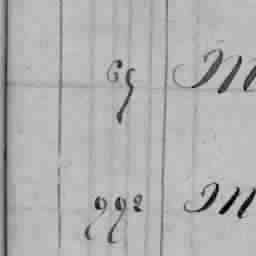 69 M
992 M